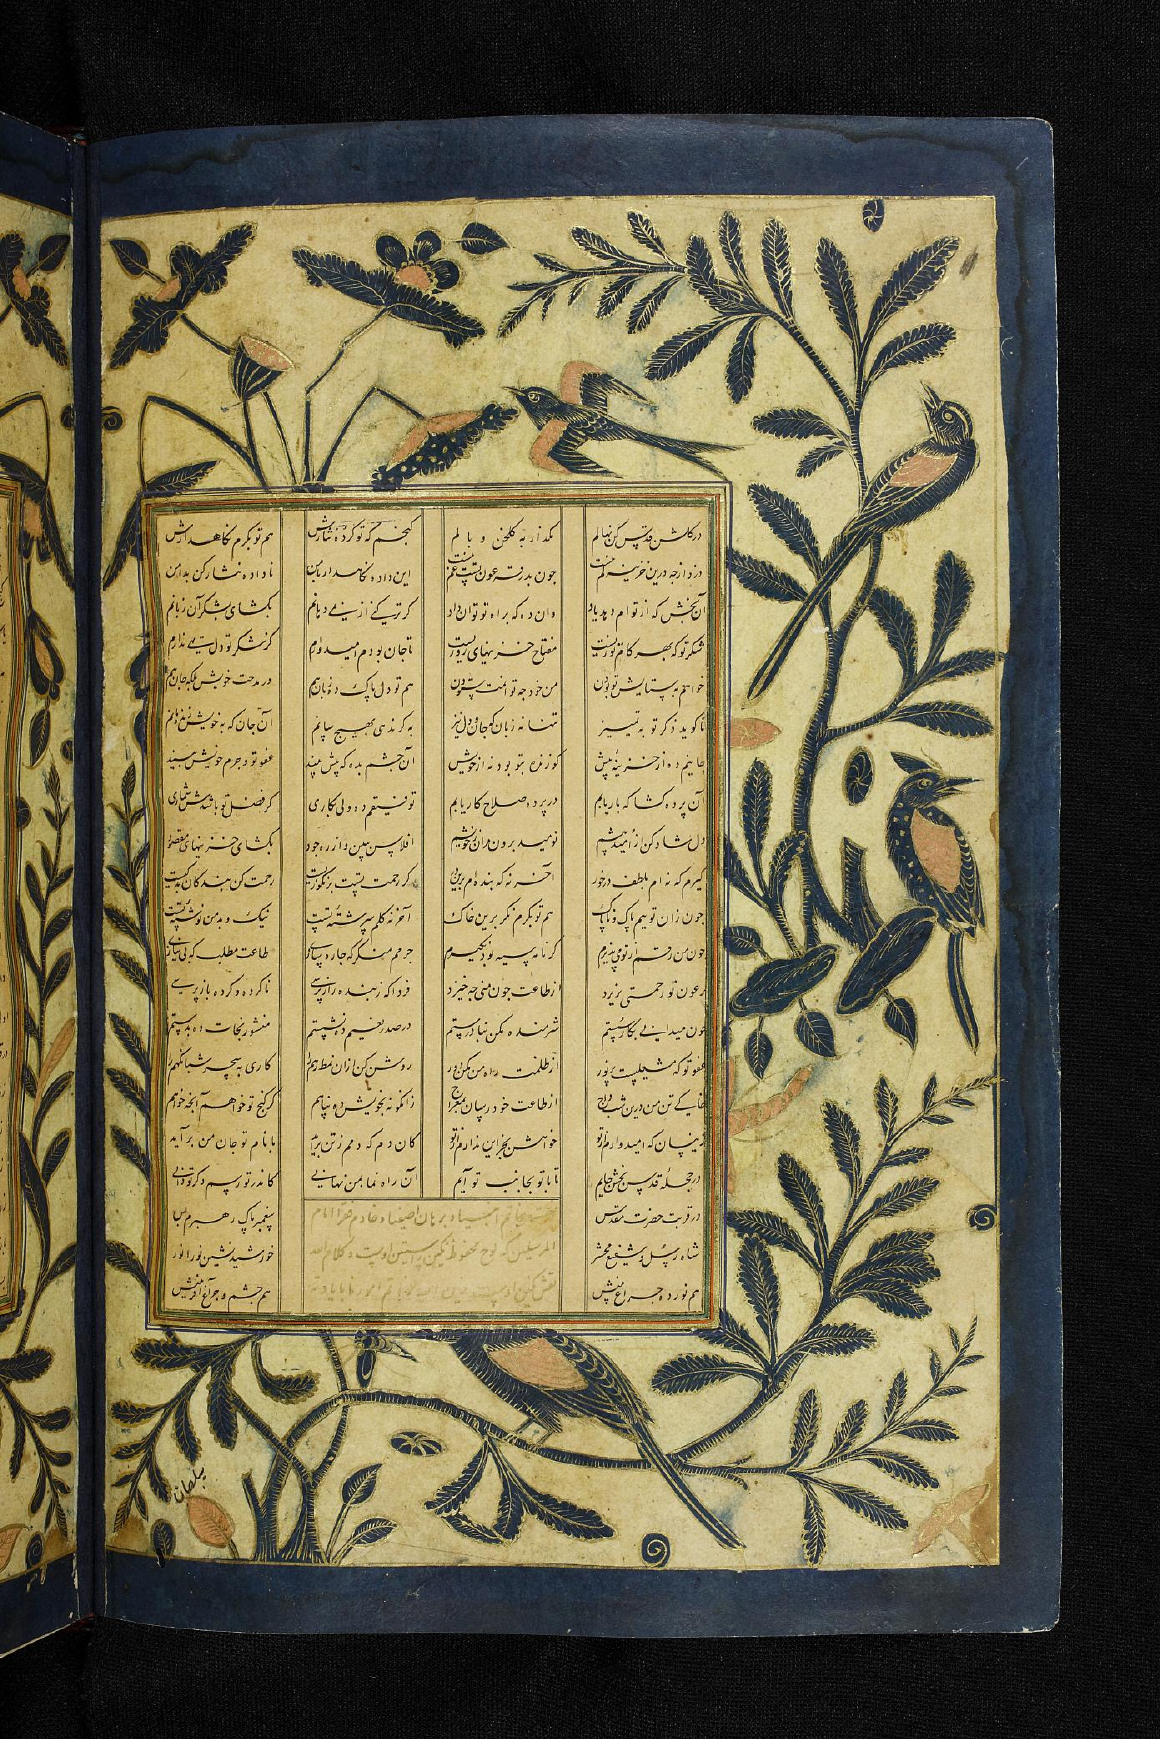 درگلشن قدس کن نهالم مگذار به گلخن وبالم گنجم که تو کرده نثارش هم تو بکرم نگاهدارش
دزد ارچه درین خزینه کم نیست چون بدرقه عون تست غم نیست این داده نگاهدار با من ناداده نثار کن بدامن
آن بخش که از تو ام دهد یاد وان ده که براه تو توان داد گر ترکنی از نمی دهانم بگشای بشکر آن زبانم
شکر تو که بهر کام توزیست مفتاح خزینهای روزیست تا جان بودم امیدوارم کز شکر تو دل تهی ندارم
خواهم بستایش تو بودن من خود چه توانمت ستودن هم تو دل پاک ده زبان هم در مدحت خویش بلکه جان هم
تا گوید ذکر تو به تمییز تنها نه زبان که جان و دل نیز به گر ندهی بهیچ آن جان که به خویش زنده
ده از خزینه پیش کو زنده بتو بود نه از خویش آن چشم بده که پیش بیند عفو تو و جرم خویش بیند
آن پرده گشا که باریابم در پرده صلاح کار یابم توفیقم ده ولی بکاری کز فضل تو باشدش شماری
دل شاد کن از امید خویشم نومید برون مران ز خویشم افلاس ببین و از ره جود بگشای خزینهای مقصود
گیرم که نه ام بلطف درخور آخر نه که بنده ام برین در گر رحمت تست بر نکو زیست رحمت کن بندگان بد کیست
چون زان توییم پاک و ناپاک هم تو بکرم نگر برین خاک آخر نه گلم سرشته تست نیک و بد من نوشته تست
چون من رقم از تو می پذیرم گر نامه سیه بود چه گیرم جرمم منگر که چاره سازی طاعت مطلب که بی نیازی
گر عون تو رحمتی نریزد از طاعت چون منی چه خیزد فردا که ز بنده راز پرسی ناکرده و کرده باز پرسی
چون میدانی بکار سستم شرمنده مکن در صدر نعیم ده نشستم منشور نجات ده بدستم
عفو تو که مشعلیست پر نور از ظلمت راه من مکن دور روشن کن ازان نمط رهم را کاری به سحر شبانگهم را
تن من درین شب داج از طاعت خود رسان بمعراج زانگونه بخویش ده پناهم کز گنج تو خواهم آنچه خواهم
زینسان که امیدوارم از تو خواهش بجز این ندارم از تو کان دم که دمم ز تن برآید با نام تو جان من برآید
در حجله قدس بخش جایم تا با تو بجانب تو آیم آن راه نما بمن نهانی کاندر تو رسم دگر تو دانی
در قربت حضرت مقدس پیغمبر پاک رهبرم بس
شاه رسل و شفیع محشر خورشید نور انور
هم نور ده چراغ بینش هم چشم و چراغ آفرینش